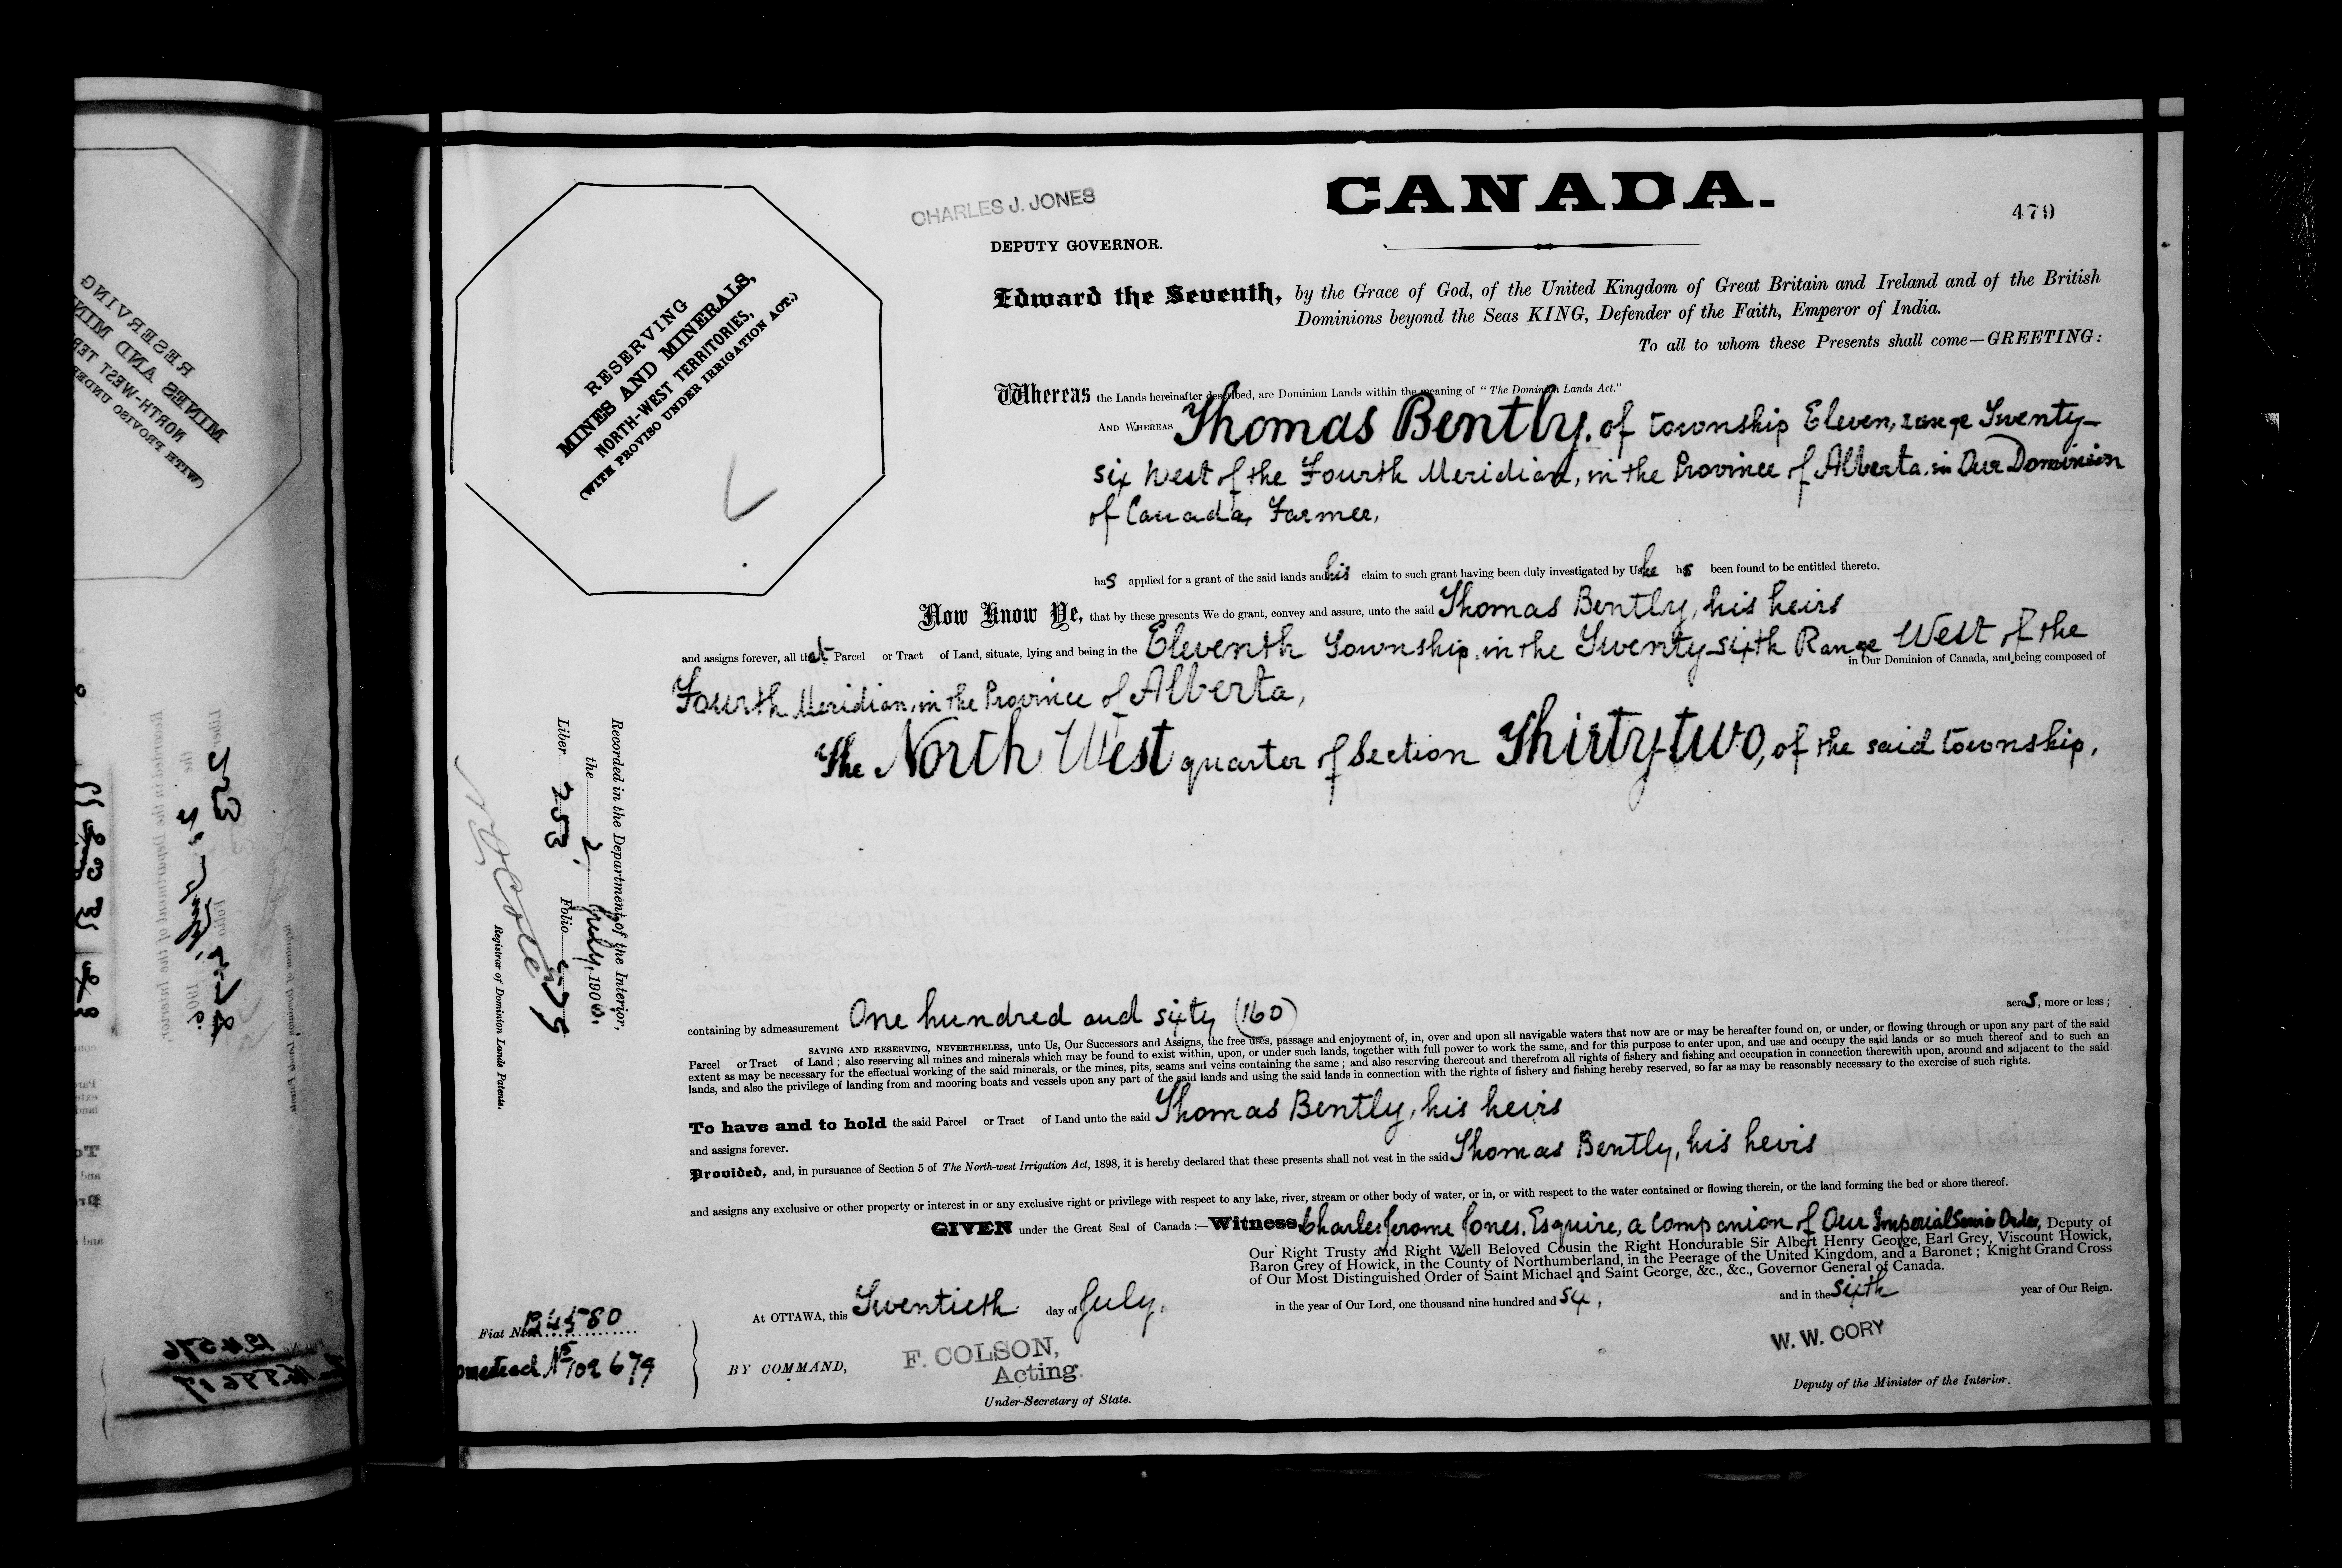 CHARLES J. JONES
CANADA.
479
DEPUTY GOVERNOR.
RESERVING
MINES AND MINERALS,
NORTH-WEST TERRITORIES,
(WITH PROVISO UNDER IRRIGATION ACT.)
Edward the Seventh, by the Grace of God, of the United Kingdom of Great Britain and Ireland and of the British
Dominions beyond the Seas KING, Defender of the Faith, Emperor of India.
To all to whom these Presents shall come—GREETING:
Whereas the Lands hereinafter described, are Dominion Lands within the meaning of "The Dominion Lands Act."
AND WHEREAS Thomas Bently, of township Eleven, range Twenty-
six West of the Fourth Meridian, in the Province of Alberta in Our Dominion
of Canada, Farmer,
has applied for a grant of the said lands and his claim to such grant having been duly investigated by Us he has been found to be entitled thereto.
Now Know Ye, that by these presents We do grant, convey and assure, unto the said Thomas Bently, his heirs
and assigns forever, all that Parcel or Tract of Land, situate, lying and being in the Eleventh Township, in the Twenty-sixth Range West of the
in Our Dominion of Canada, and being composed of
Fourth Meridian, in the Province of Alberta,
The North West quarter of Section Thirty-two, of the said township,
Recorded in the Department of the Interior,
the 2, July, 1906.
Liber 253 Folio 479
Registrar of Dominion Lands Patents.
containing by admeasurement One hundred and sixty (160) acres, more or less;
SAVING AND RESERVING, NEVERTHELESS, unto Us, Our Successors and Assigns, the free uses, passage and enjoyment of, in, over and upon all navigable waters that now are or may be hereafter found on, or under, or flowing through or upon any part of the said
Parcel or Tract of Land; also reserving all mines and minerals which may be found to exist within, upon, or under such lands, together with full power to work the same, and for this purpose to enter upon, and use and occupy the said lands or so much thereof and to such an
extent as may be necessary for the effectual working of the said minerals, or the mines, pits, seams and veins containing the same; and also reserving thereout and therefrom all rights of fishery and fishing and occupation in connection therewith upon, around and adjacent to the said
lands, and also the privilege of landing from and mooring boats and vessels upon any part of the said lands and using the said lands in connection with the rights of fishery and fishing hereby reserved, so far as may be reasonably necessary to the exercise of such rights.
To have and to hold the said Parcel or Tract of Land unto the said Thomas Bently, his heirs
and assigns forever.
Provided, and, in pursuance of Section 5 of The North-west Irrigation Act, 1898, it is hereby declared that these presents shall not vest in the said Thomas Bently, his heirs
and assigns any exclusive or other property or interest in or any exclusive right or privilege with respect to any lake, river, stream or other body of water, or in, or with respect to the water contained or flowing therein, or the land forming the bed or shore thereof.
GIVEN under the Great Seal of Canada:—Witness, Charles Jerome Jones, Esquire, a Companion of Our Imperial Service Order, Deputy of
Our Right Trusty and Right Well Beloved Cousin the Right Honourable Sir Albert Henry George, Earl Grey, Viscount Howick,
Baron Grey of Howick, in the County of Northumberland, in the Peerage of the United Kingdom, and a Baronet; Knight Grand Cross
of Our Most Distinguished Order of Saint Michael and Saint George, &c., &c., Governor General of Canada.
At OTTAWA, this Twentieth day of July, in the year of Our Lord, one thousand nine hundred and six, and in the sixth year of Our Reign.
Fiat No. 134580
omestead No 102679
BY COMMAND,
F. COLSON,
Acting.
Under-Secretary of State.
W. W. CORY
Deputy of the Minister of the Interior.